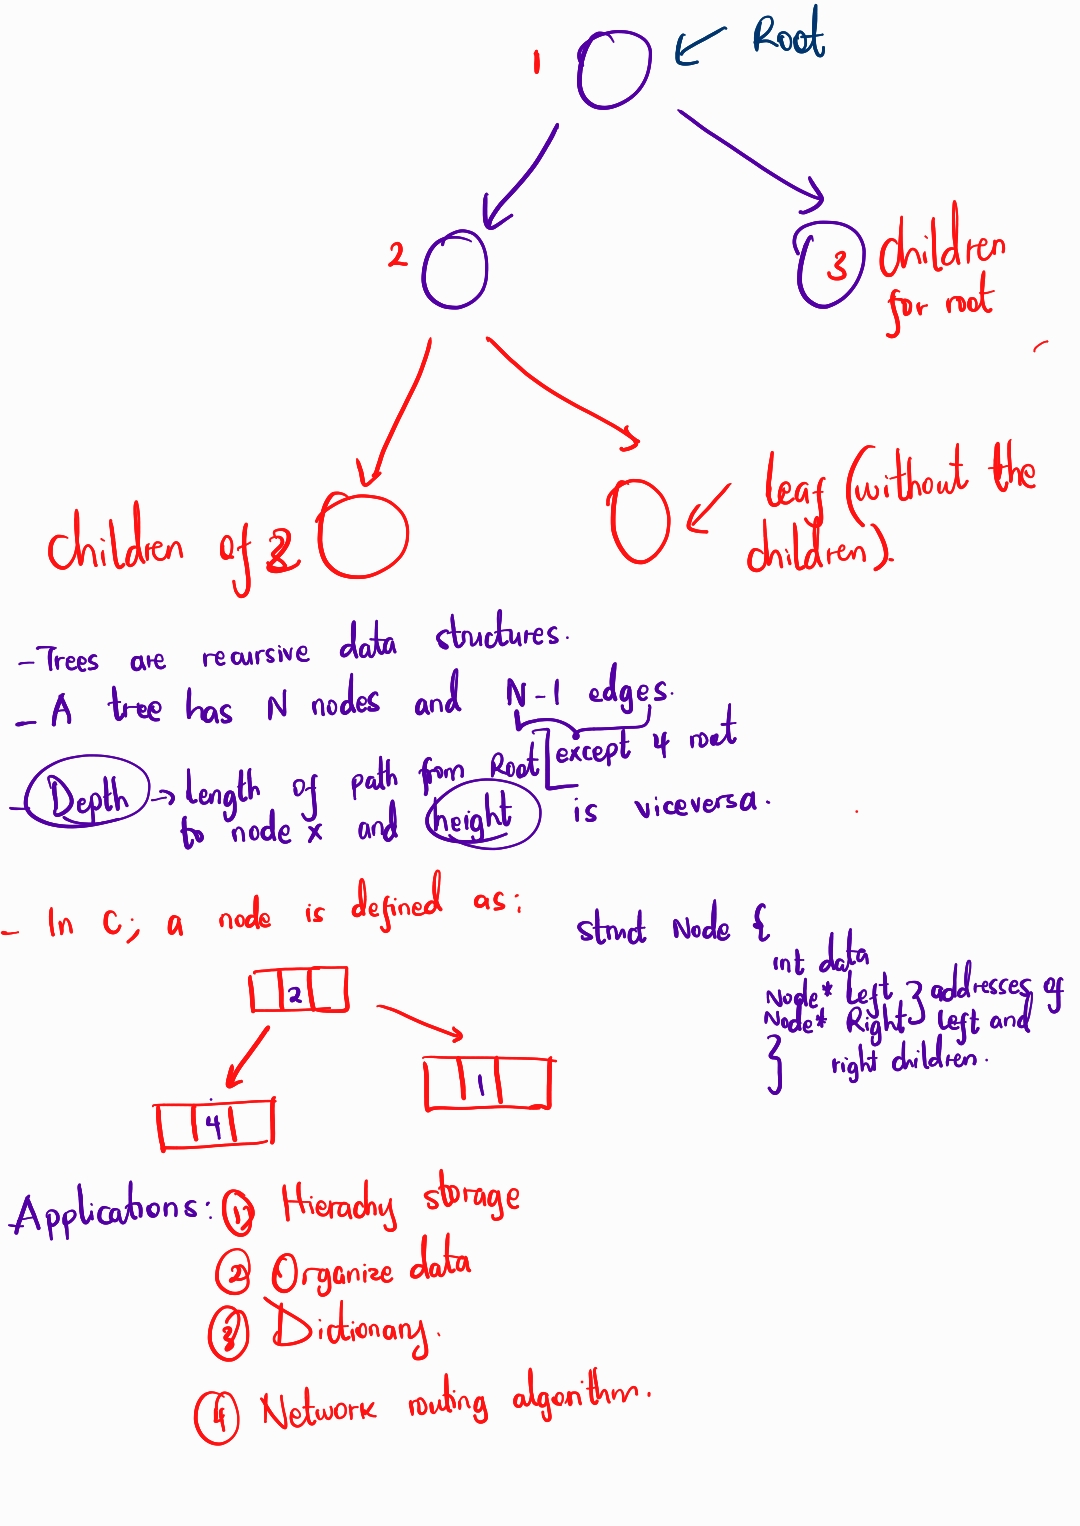 1
Root
2
3
children
for root
children of 2
leaf (without the
children).
- Trees are recursive data structures.
- A tree has N nodes and N-1 edges.
[except 4 root
- Depth → length of path from Root
to node x and height is viceversa.
- In C; a node is defined as:
struct Node {
int data
Node* Left } addresses of
Node* Right left and
} right children.
2
4
1
Applications: 1) Hierachy storage
2 Organize data
3 Dictionary.
4 Network routing algorithm.